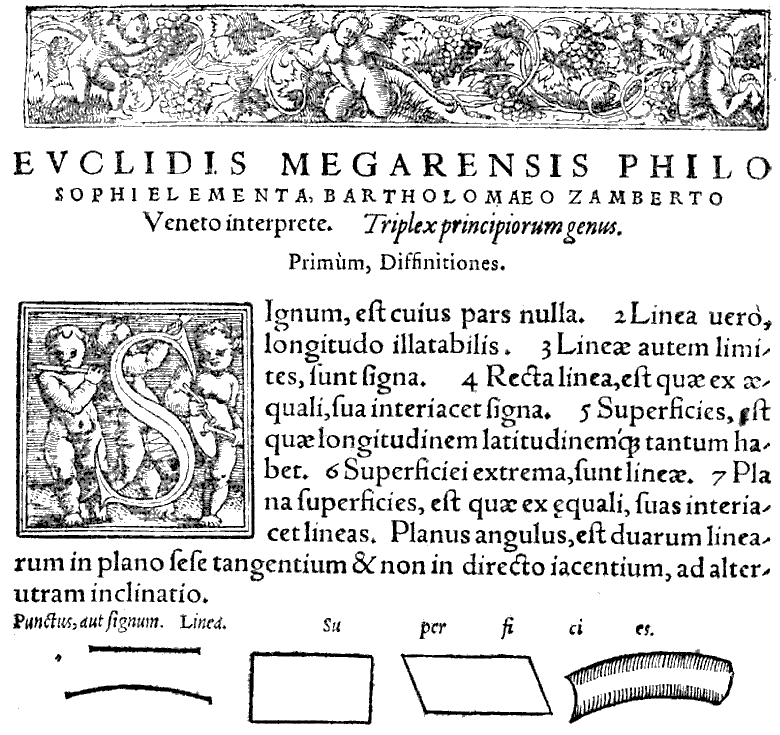 EVCLIDIS MEGARENSIS PHILO
SOPHI ELEMENTA, BARTHOLOMAEO ZAMBERTO
Veneto interprete. Triplex principiorum genus.
Primùm, Diffinitiones.
SIgnum, eſt cuius pars nulla. 2 Linea uerò,
longitudo illatabilis. 3 Lineæ autem limi-
tes, ſunt ſigna. 4 Recta linea, eſt quæ ex æ-
quali, ſua interiacet ſigna. 5 Superficies, eſt
quæ longitudinem latitudinemq́; tantum ha-
bet. 6 Superficiei extrema, ſunt lineæ. 7 Pla
na ſuperficies, eſt quæ ex ęquali, ſuas interia-
cet lineas. Planus angulus, eſt duarum linea-
rum in plano ſeſe tangentium & non in directo iacentium, ad alter-
utram inclinatio.
Punctus, aut ſignum. Linea. Su per fi ci es.